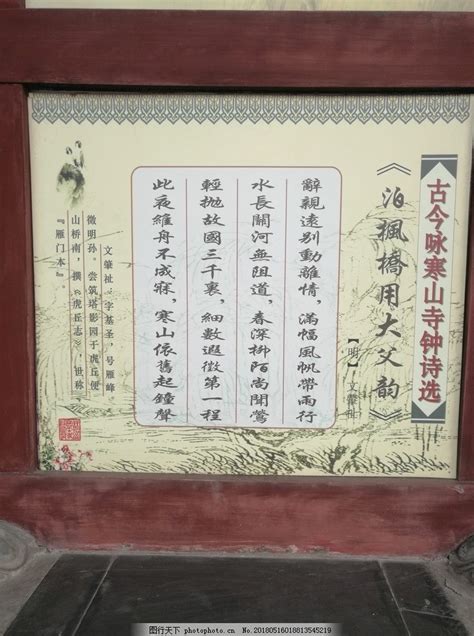 古今咏寒山寺钟诗选
《泊楓橋用大父韵》
【明】文肇祉
辭親遠别動離情，滿幅風帆帶雨行
水長關河無阻道，春深柳陌尚聞鶯
輕抛故國三千裏，細數遐徵第一程
此夜維舟不成寐，寒山依舊起鐘聲
文肇祉，字基圣，号雁峰。
徵明孙。尝筑塔影园于虎丘便
山桥南，撰《虎丘志》，世称
『雁门本』。
图行天下 photophoto.cn No.20180516018813545219